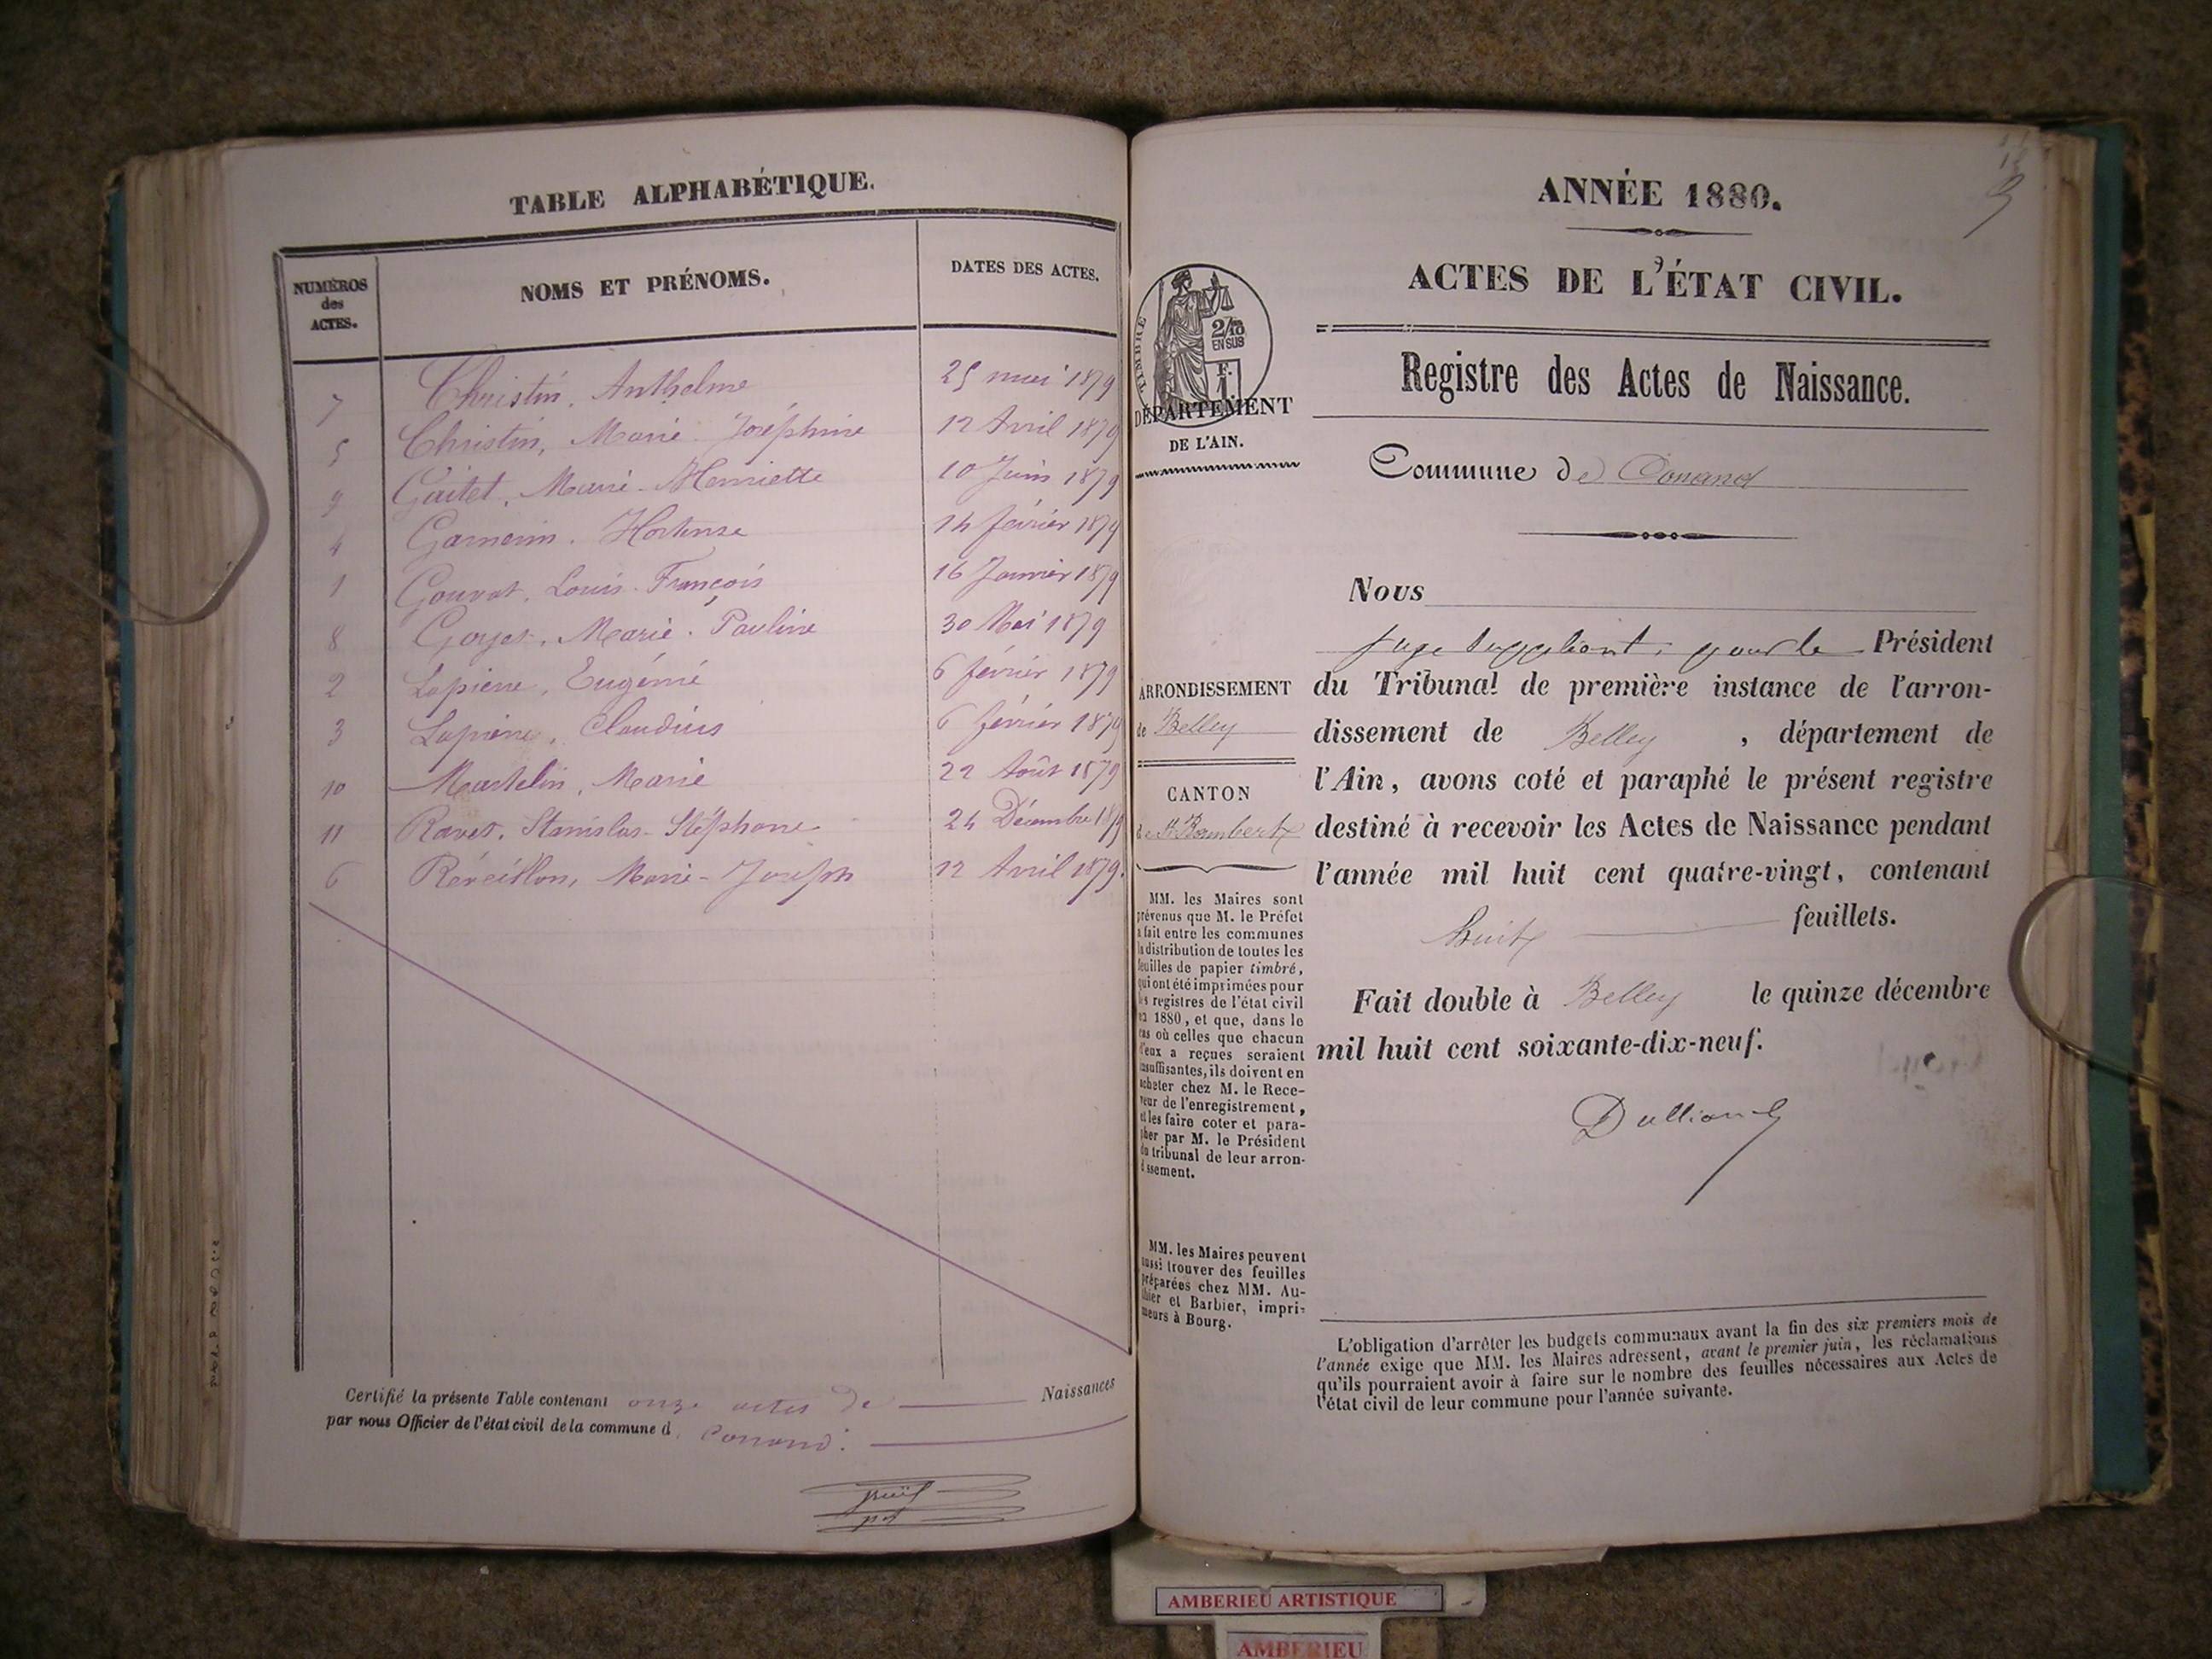 TABLE ALPHABÉTIQUE.
NUMÉROS des ACTES.
NOMS ET PRÉNOMS.
DATES DES ACTES.
7 Christin, Anthelme 25 mai 1879
5 Christin, Marie Joséphine 12 Avril 1879
9 Gaitet, Marie-Henriette 10 Juin 1879
4 Garnerin. Hortense 14 février 1879
1 Gouvat, Louis-François 16 Janvier 1879
8 Goyet, Marie-Pauline 30 Mai 1879
2 Lapierre, Eugénie 6 février 1879
3 Lapierre, Claudius 6 février 1879
10 Martelin, Marie 22 Août 1879
11 Ravet, Stanislas-Stéphane 24 Décembre 1879
6 Réveillon, Marie-Joseph 12 Avril 1879.
Certifié la présente Table contenant onze actes de Naissances
par nous Officier de l'état civil de la commune d Conand.
ANNÉE 1880.
ACTES DE L'ÉTAT CIVIL.
Registre des Actes de Naissance.
TIMBRE
2/10
EN SUS
1 F.
DÉPARTEMENT
DE L'AIN.
Commune de Conand
Nous
Juge suppléant, pour le Président
du Tribunal de première instance de l'arron-
dissement de Belley , département de
l'Ain, avons coté et paraphé le présent registre
destiné à recevoir les Actes de Naissance pendant
l'année mil huit cent quatre-vingt, contenant
huit feuillets.
Fait double à Belley le quinze décembre
mil huit cent soixante-dix-neuf.
ARRONDISSEMENT
de Belley
CANTON
de St Rambert
MM. les Maires sont
prévenus que M. le Préfet
a fait entre les communes
la distribution de toutes les
feuilles de papier timbré,
qui ont été imprimées pour
les registres de l'état civil
en 1880, et que, dans le
cas où celles que chacun
d'eux a reçues seraient
insuffisantes, ils doivent en
acheter chez M. le Rece-
veur de l'enregistrement,
et les faire coter et para-
pher par M. le Président
du tribunal de leur arron-
dissement.
MM. les Maires peuvent
aussi trouver des feuilles
préparées chez MM. Au-
thier et Barbier, impri-
meurs à Bourg.
L'obligation d'arrêter les budgets communaux avant la fin des six premiers mois de
l'année exige que MM. les Maires adressent, avant le premier juin, les réclamations
qu'ils pourraient avoir à faire sur le nombre des feuilles nécessaires aux Actes de
l'état civil de leur commune pour l'année suivante.
AMBERIEU ARTISTIQUE
AMBERIEU